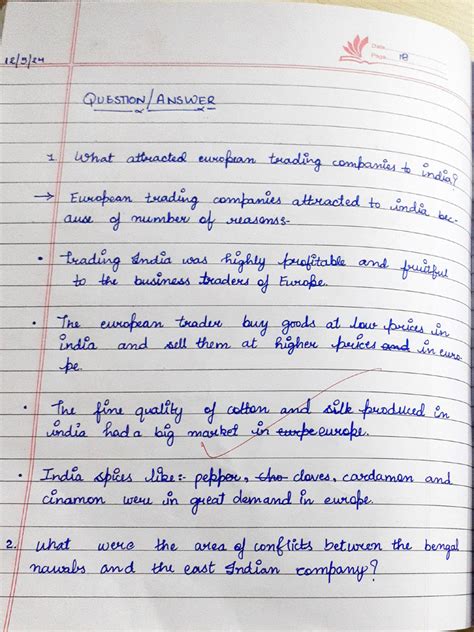 12/9/24
Date
Page 18
QUESTION/ANSWER
1. What attracted european trading companies to india?
→ European trading companies attracted to india bec-
ause of number of reasonss-
• Trading India was highly profitable and fruitful
to the business traders of Europe.
• The european trader buy goods at low prices in
india and sell them at higher prices and in euro
pe.
• The fine quality of cotton and silk produced in
india had a big market in europe europe.
• India spices like:- pepper, cloves, cardamon and
cinamon were in great demand in europe.
2. What were the area of conflicts between the bengal
nawabs and the east Indian company?